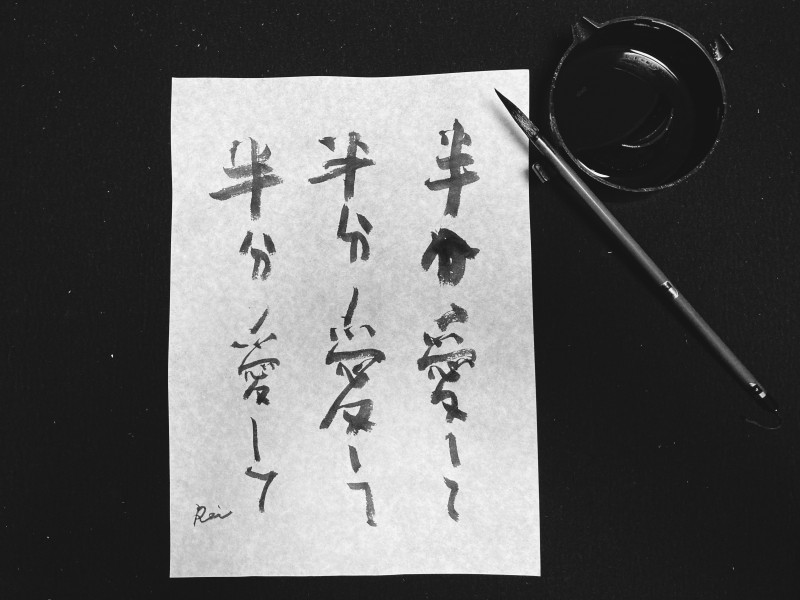 半分愛して
半分愛して
半分愛して
Rei